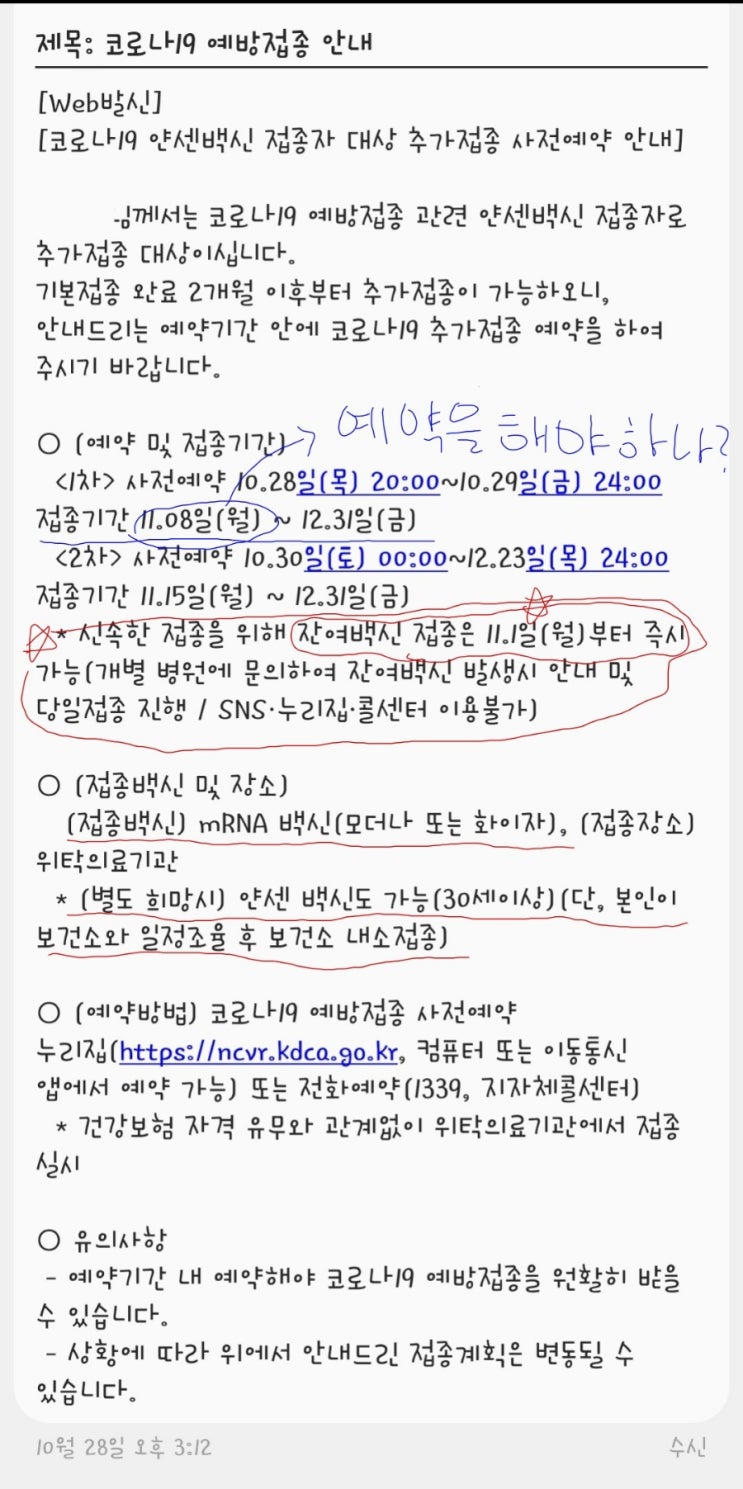 제목: 코로나19 예방접종 안내
[Web발신]
[코로나19 얀센백신 접종자 대상 추가접종 사전예약 안내]
님께서는 코로나19 예방접종 관련 얀센백신 접종자로
추가접종 대상이십니다.
기본접종 완료 2개월 이후부터 추가접종이 가능하오니,
안내드리는 예약기간 안에 코로나19 추가접종 예약을 하여
주시기 바랍니다.
예약을 해야하나?
○ (예약 및 접종기간)
<1차> 사전예약 10.28일(목) 20:00~10.29일(금) 24:00
접종기간 11.08일(월) ~ 12.31일(금)
<2차> 사전예약 10.30일(토) 00:00~12.23일(목) 24:00
접종기간 11.15일(월) ~ 12.31일(금)
* 신속한 접종을 위해 잔여백신 접종은 11.1일(월)부터 즉시
가능(개별 병원에 문의하여 잔여백신 발생시 안내 및
당일접종 진행 / SNS·누리집·콜센터 이용불가)
○ (접종백신 및 장소)
(접종백신) mRNA 백신(모더나 또는 화이자), (접종장소)
위탁의료기관
* (별도 희망시) 얀센 백신도 가능(30세이상)(단, 본인이
보건소와 일정조율 후 보건소 내소접종)
○ (예약방법) 코로나19 예방접종 사전예약
누리집(https://ncvr.kdca.go.kr, 컴퓨터 또는 이동통신
앱에서 예약 가능) 또는 전화예약(1339, 지자체콜센터)
* 건강보험 자격 유무와 관계없이 위탁의료기관에서 접종
실시
○ 유의사항
- 예약기간 내 예약해야 코로나19 예방접종을 원활히 받을
수 있습니다.
- 상황에 따라 위에서 안내드린 접종계획은 변동될 수
있습니다.
10월 28일 오후 3:12
수신